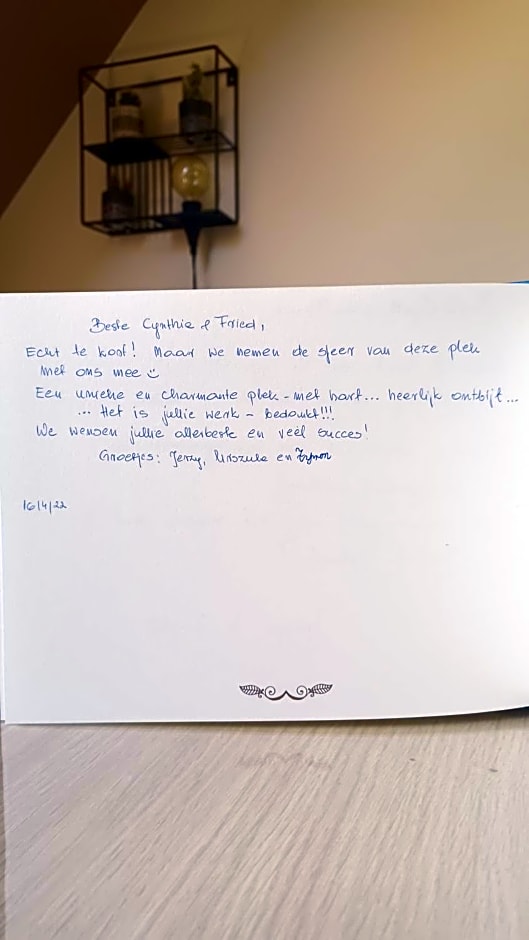 Beste Cynthia & Fried,
Echt te koof! Maar we nemen de sfeer van deze plek
met ons mee ☺
Een unieke en charmante plek - met hart... heerlijk ontbijt...
... Het is jullie werk - bedankt!!!
We wensen jullie allerbeste en veel succes!
Groetjes: Jerzy, Urszula en Szymon
16/4/22